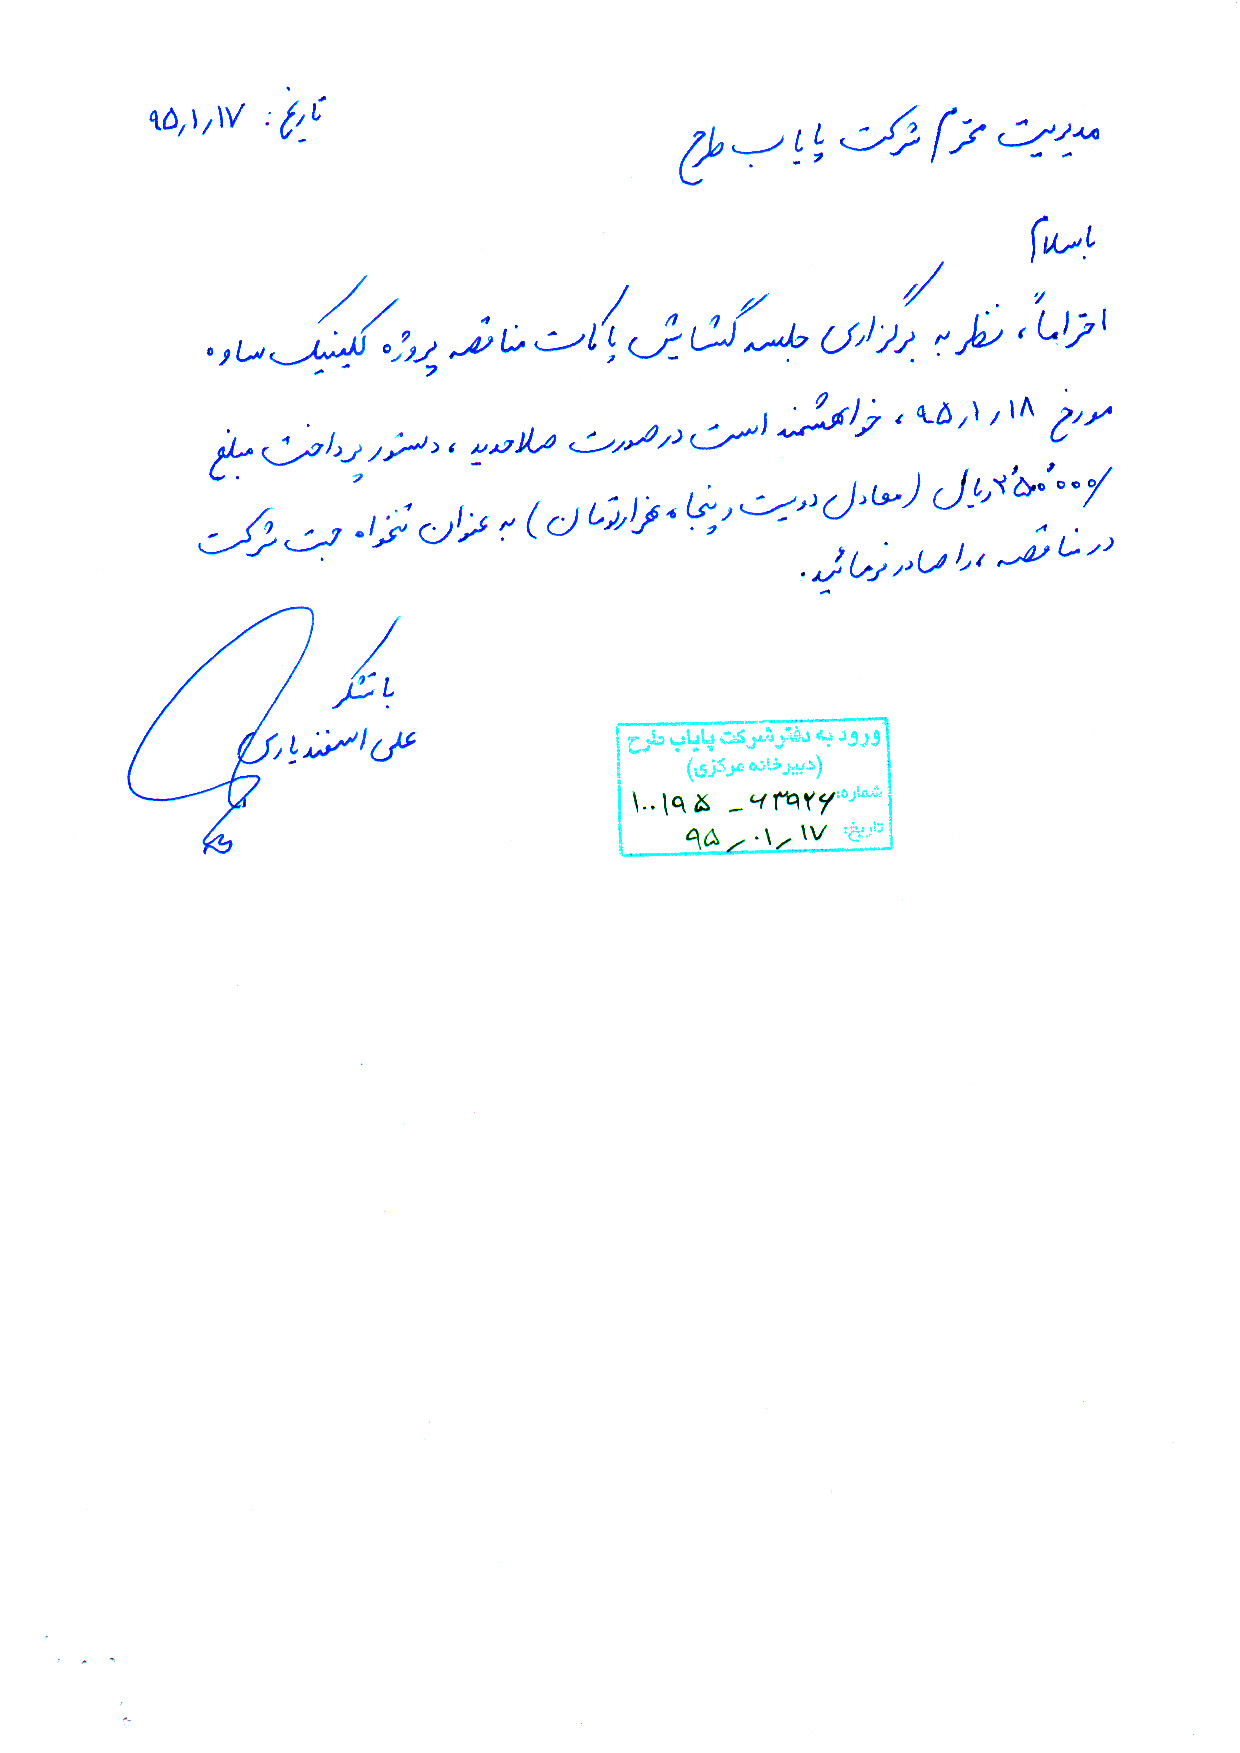 تاریخ: ۹۵/۱/۱۷
مدیریت محترم شرکت پایاب طرح
با سلام
احتراماً، نظر به برگزاری جلسه گشایش پاکات مناقصه پروژه کلینیک ساوه
مورخ ۹۵/۱/۱۸، خواهشمند است در صورت صلاحدید، دستور پرداخت مبلغ
۲٬۵۰۰٬۰۰۰/ ریال (معادل دویست و پنجاه هزار تومان) به عنوان تنخواه جهت شرکت
در مناقصه، را صادر فرمائید.
با تشکر
علی اسفندیاری
ورود به دفتر شرکت پایاب طرح
(دبیرخانه مرکزی)
شماره: ۱۰۰۱۹۵ - ۶۳۹۲۶
تاریخ: ۹۵/۰۱/۱۷